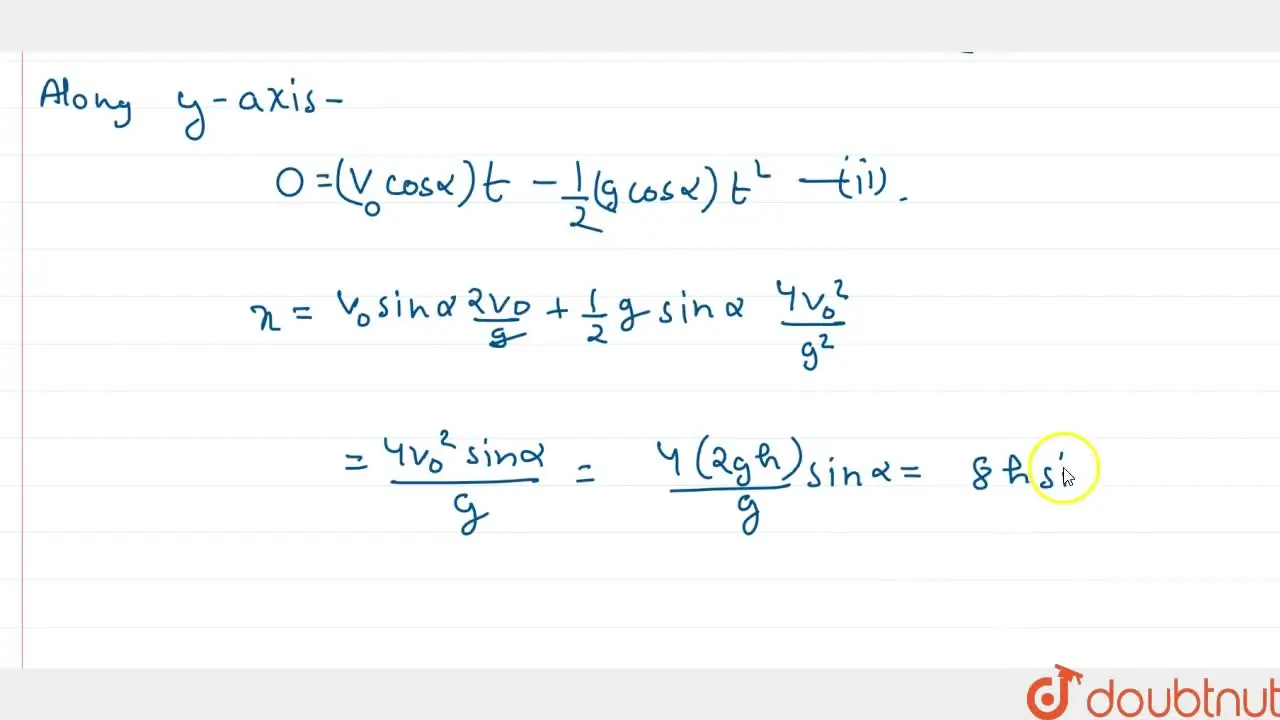 Along y-axis-
0 = (V₀ cosα) t - 1/2 (g cosα) t² —(ii).
x = V₀ sinα 2V₀/g + 1/2 g sinα 4V₀²/g²
= 4V₀² sinα/g = 4(2gh)/g sinα = 8h si
doubtnut